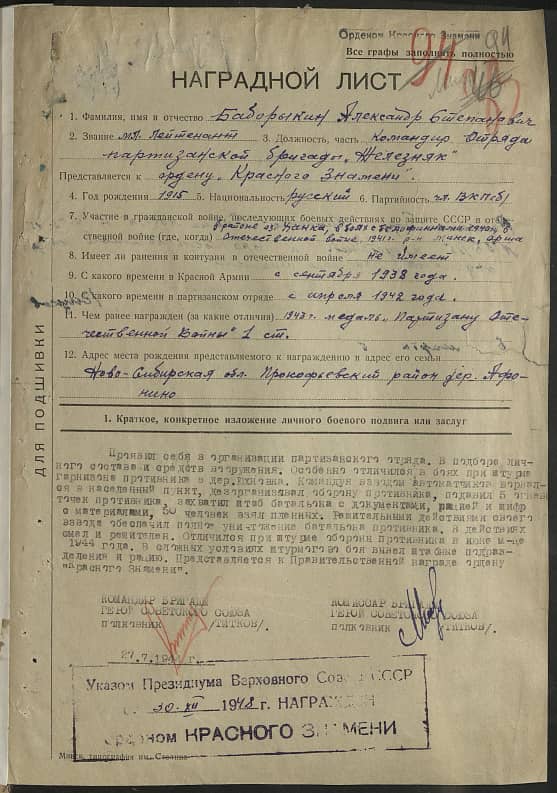 Орденом Красного Знамени
Все графы заполнять полностью
94
НАГРАДНОЙ ЛИСТ
1. Фамилия, имя и отчество Баборыкин Александр Степанович
2. Звание мл. лейтенант 3. Должность, часть командир отряда
партизанской бригады „Железняк"
Представляется к ордену „Красного Знамени".
4. Год рождения 1915 5. Национальность русский 6. Партийность чл. ВКП(б)
7. Участие в гражданской войне, последующих боевых действиях по защите СССР и отече-
ственной войне (где, когда) Отечественной войне 1941 г. р-н Минск, Орша
8. Имеет ли ранения и контузии в отечественной войне не имеет
9. С какого времени в Красной Армии с сентября 1938 года.
10. С какого времени в партизанском отряде с апреля 1942 года.
11. Чем ранее награжден (за какие отличия) 1943 г. медаль „Партизану Оте-
чественной Войны" 1 ст.
12. Адрес места рождения представляемого к награждению и адрес его семьи
Ново-Сибирская обл. Прокофьевский район дер. Афо-
нино
ДЛЯ ПОДШИВКИ
1. Краткое, конкретное изложение личного боевого подвига или заслуг
Проявил себя в организации партизанского отряда. В подборе лич-
ного состава и средств вооружения. Особенно отличился в боях при штурме
гарнизона противника в дер. Командуя взводом автоматчиков ворвал-
ся в населенный пункт, дезорганизовал оборону противника, подавил 5 огневых
точек противника, захватил штаб батальона с документами, рацией и шифр
с материалами, 30 человек взял пленных. Решительными действиями своего
взвода обеспечил полное уничтожение батальона противника. В действиях
смел и решителен. Отличился при штурме обороны противника в июне м-це
1944 года. В сложных условиях штурмового боя вывел штабные подраз-
деления и рацию. Представляется к Правительственной награде ордену
"Красного Знамени".
КОМАНДИР БРИГАДЫ
ГЕРОЙ СОВЕТСКОГО СОЮЗА
полковник /ТИТКОВ/.
КОМИССАР БРИГАДЫ
ГЕРОЙ СОВЕТСКОГО СОЮЗА
полковник /ТИТКОВ/.
27.7.194 г.
Указом Президиума Верховного Совета СССР
от 30.XII 1948 г. НАГРАЖДЕН
орденом КРАСНОГО ЗНАМЕНИ
Минск, типография им. Сталина